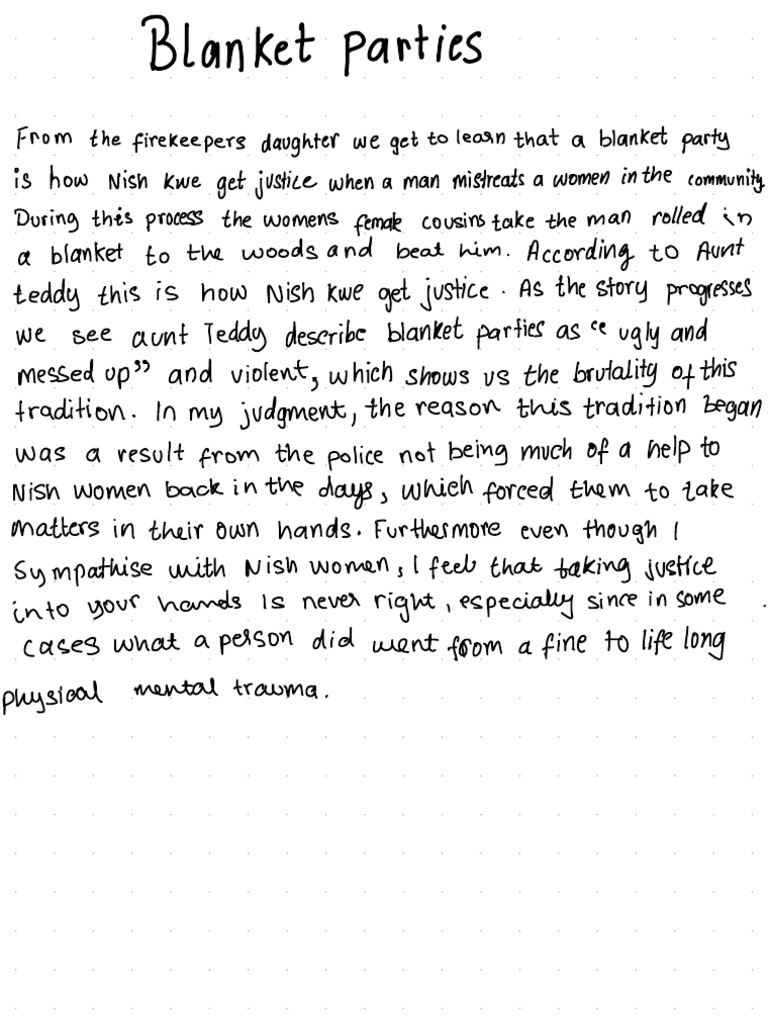 Blanket parties
From the firekeepers daughter we get to learn that a blanket party
is how Nish Kwe get justice when a man mistreats a women in the community.
During this process the womens female cousins take the man rolled in
a blanket to the woods and beat him. According to Aunt
teddy this is how Nish kwe get justice. As the story progresses
we see aunt Teddy describe blanket parties as “ugly and
messed up” and violent, which shows us the brutality of this
tradition. In my judgment, the reason this tradition began
was a result from the police not being much of a help to
Nish women back in the days, which forced them to take
matters in their own hands. Furthermore even though I
sympathise with Nish women, I feel that taking justice
into your hands is never right, especially since in some
cases what a person did went from a fine to life long
physical mental trauma.